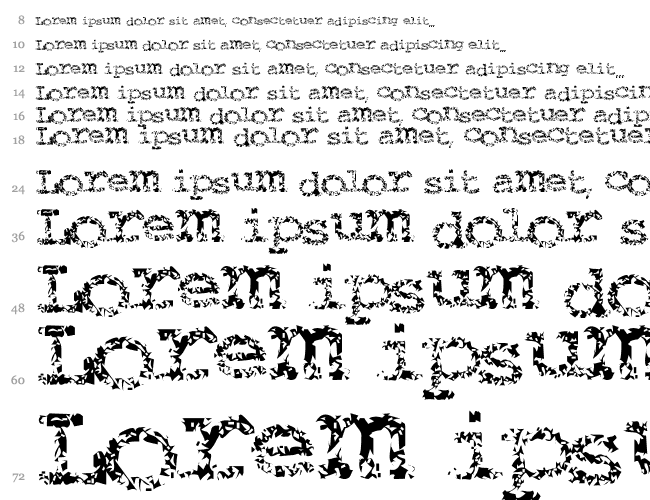 8 Lorem ipsum dolor sit amet, consectetuer adipiscing elit,,,
10 Lorem ipsum dolor sit amet, consectetuer adipiscing elit,,,
12 Lorem ipsum dolor sit amet, consectetuer adipiscing elit,,,
14 Lorem ipsum dolor sit amet, consectetuer adipiscin
16 Lorem ipsum dolor sit amet, consectetuer adip
18 Lorem ipsum dolor sit amet, consectetuer
24 Lorem ipsum dolor sit amet, co
36 Lorem ipsum dolor s
48 Lorem ipsum do
60 Lorem ipsum
72 Lorem ipsu